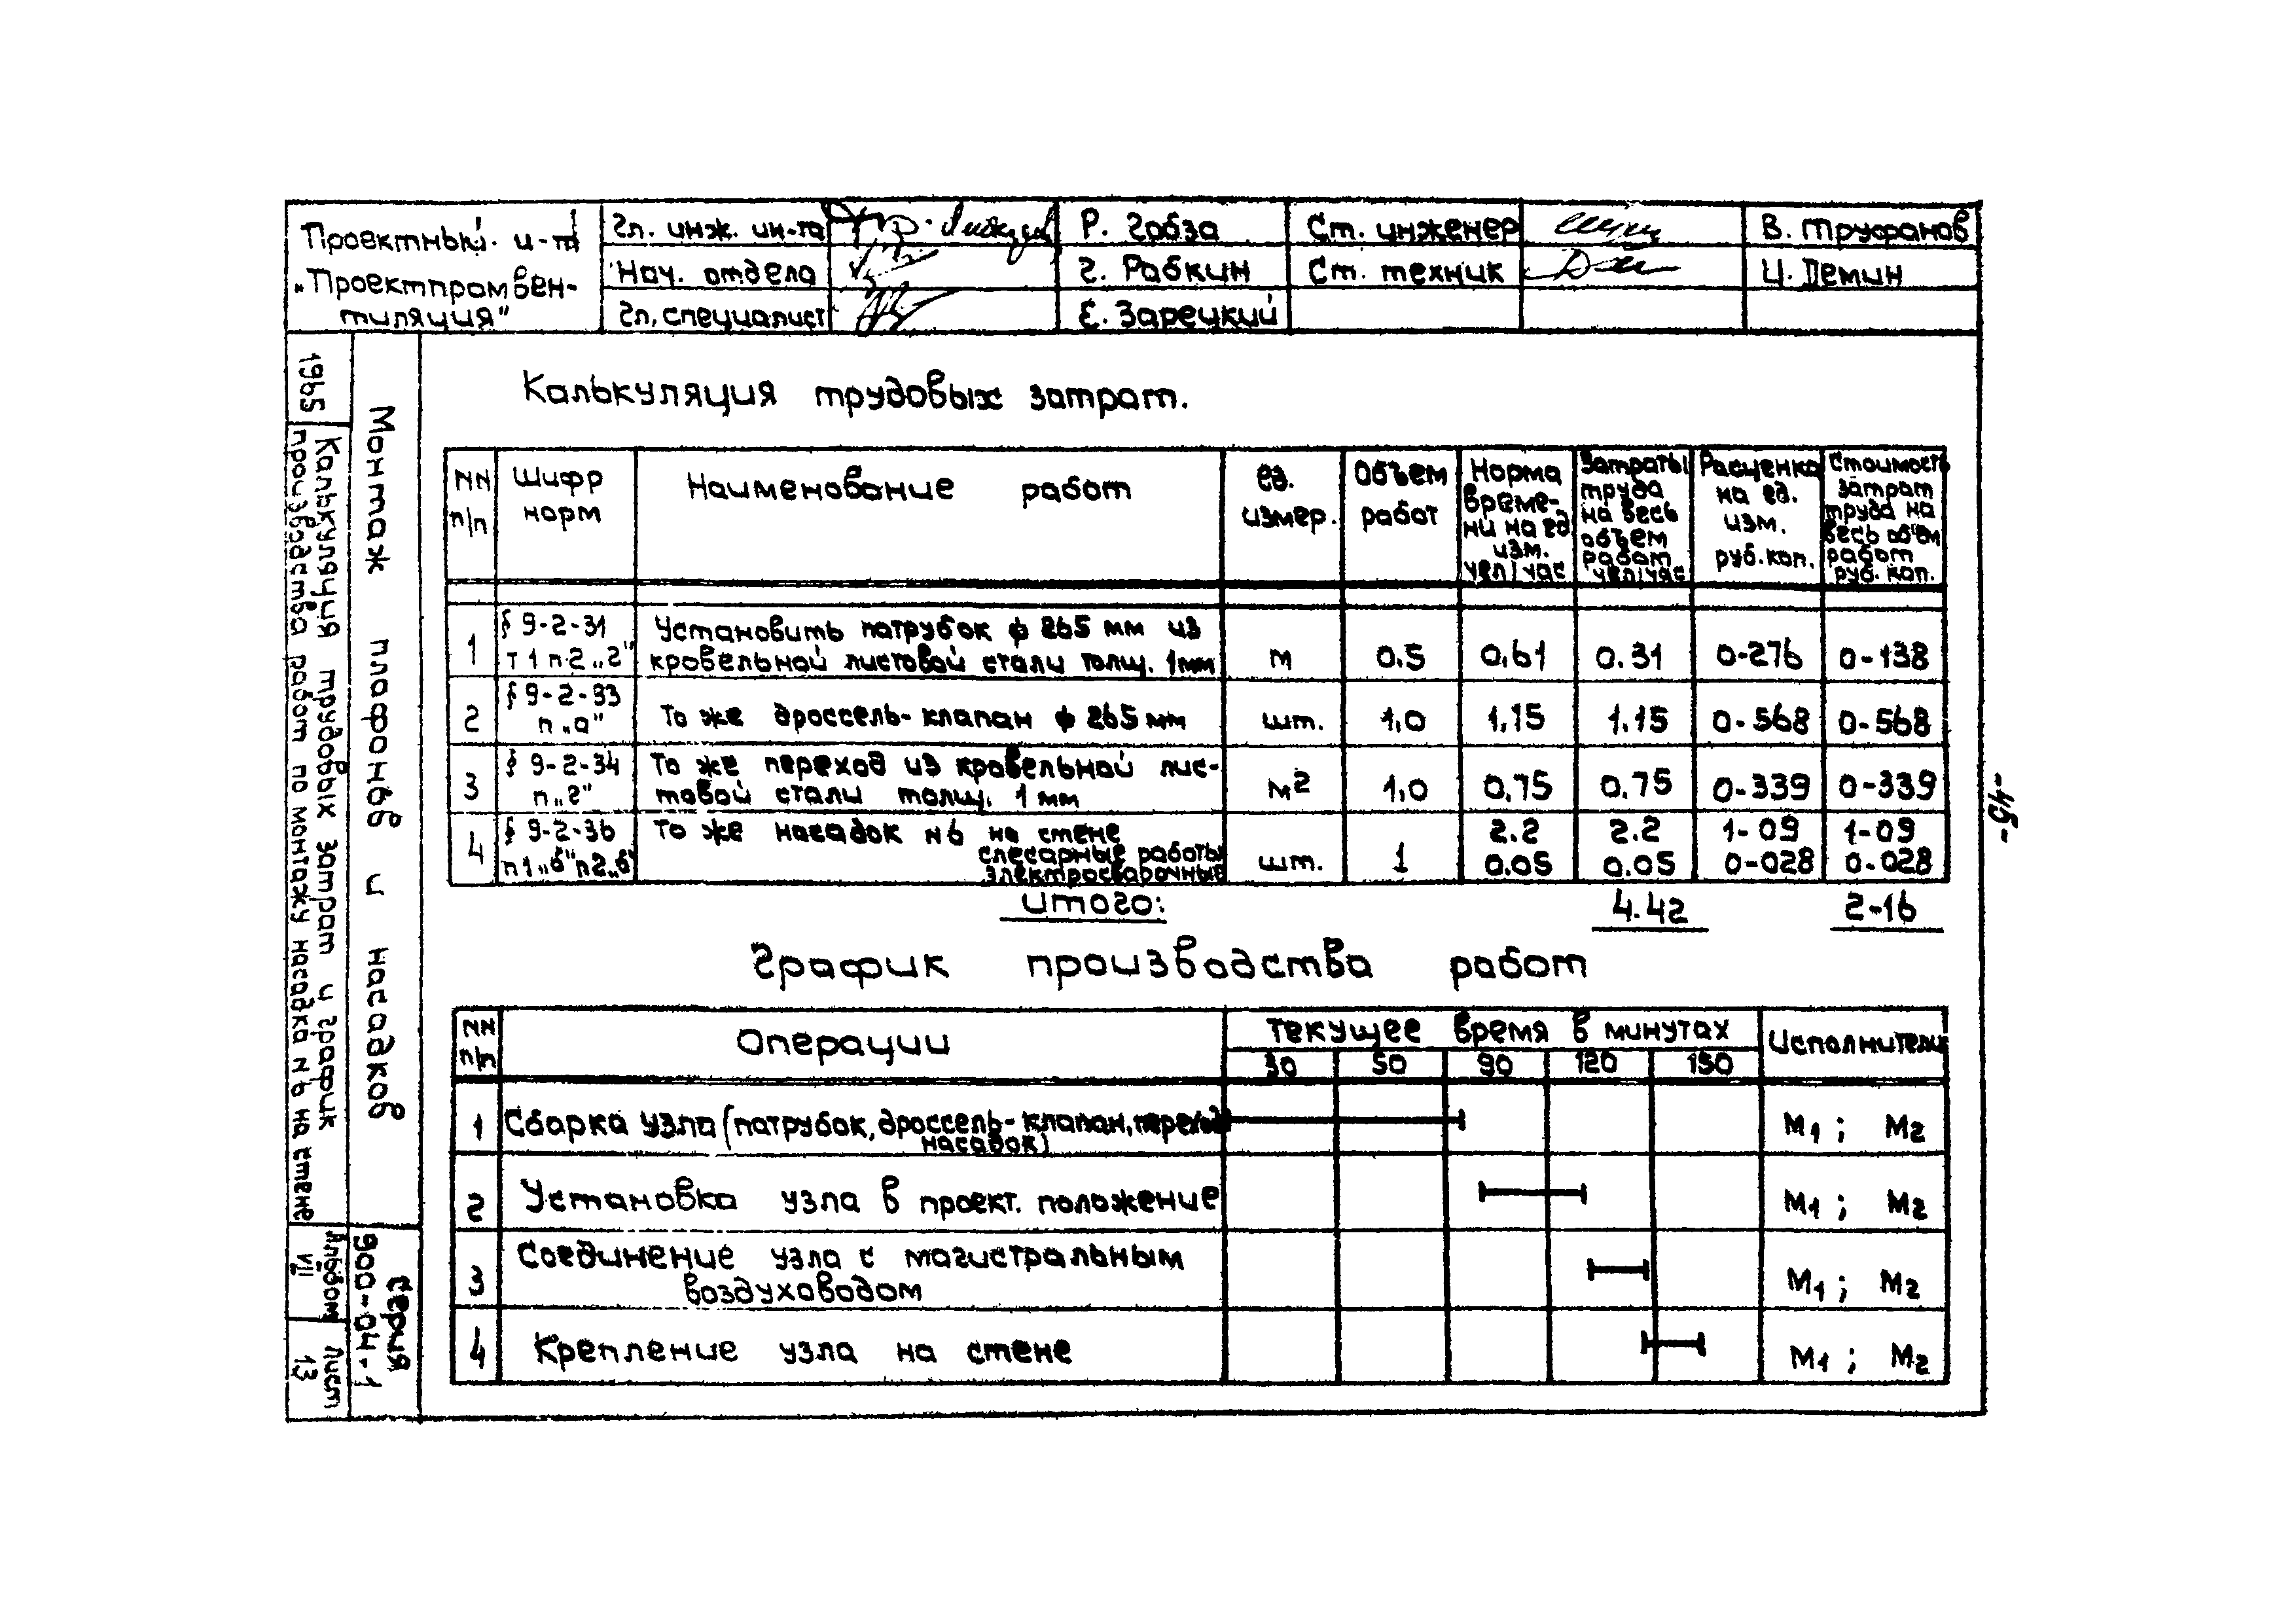 Проектный и-т
„Проектпромвен-
тиляция"
Гл. инж. ин-та
Р. Гобза
Ст. инженер
В. Труфанов
Нач. отдела
Г. Рабкин
Ст. техник
Ц. Демин
Гл. специалист
Е. Зарецкий
1965
Калькуляция трудовых затрат и график
производства работ по монтажу насадка н6 на стене
Монтаж плафонов и насадков
Альбом
VII
Лист
13
Серия
900-04-1
Калькуляция трудовых затрат.
NN
п/п
Шифр
норм
Наименование работ
ед.
измер.
Объем
работ
Норма
време-
ни на ед
изм.
чел/час
Затраты
труда
на весь
объем
работ
чел/час
Расценка
на ед.
изм.
руб.коп.
Стоимость
затрат
труда на
весь объем
работ
руб. коп.
1
§ 9-2-31
т 1 п 2 „г"
Установить патрубок ф 265 мм из
кровельной листовой стали толщ. 1мм
м
0.5
0.61
0.31
0-276
0-138
2
§ 9-2-33
п „а"
То же дроссель-клапан ф 265 мм
шт.
1,0
1.15
1.15
0-568
0-568
3
§ 9-2-34
п „г"
То же переход из кровельной лис-
товой стали толщ. 1 мм
м2
1,0
0.75
0.75
0-339
0-339
4
§ 9-2-36
п1„б" п2„б"
То же насадок н6 на стене
слесарные работы
электросварочные
шт.
1
2.2
0.05
2.2
0.05
1-09
0-028
1-09
0-028
Итого:
4.42
2-16
График производства работ
NN
п/п
Операции
Текущее время в минутах
30 50 90 120 150
Исполнители
1
Сборка узла (патрубок, дроссель-клапан, переход
насадок)
М1; М2
2
Установка узла в проект. положение
М1; М2
3
Соединение узла с магистральным
воздуховодом
М1; М2
4
Крепление узла на стене
М1; М2
-45-